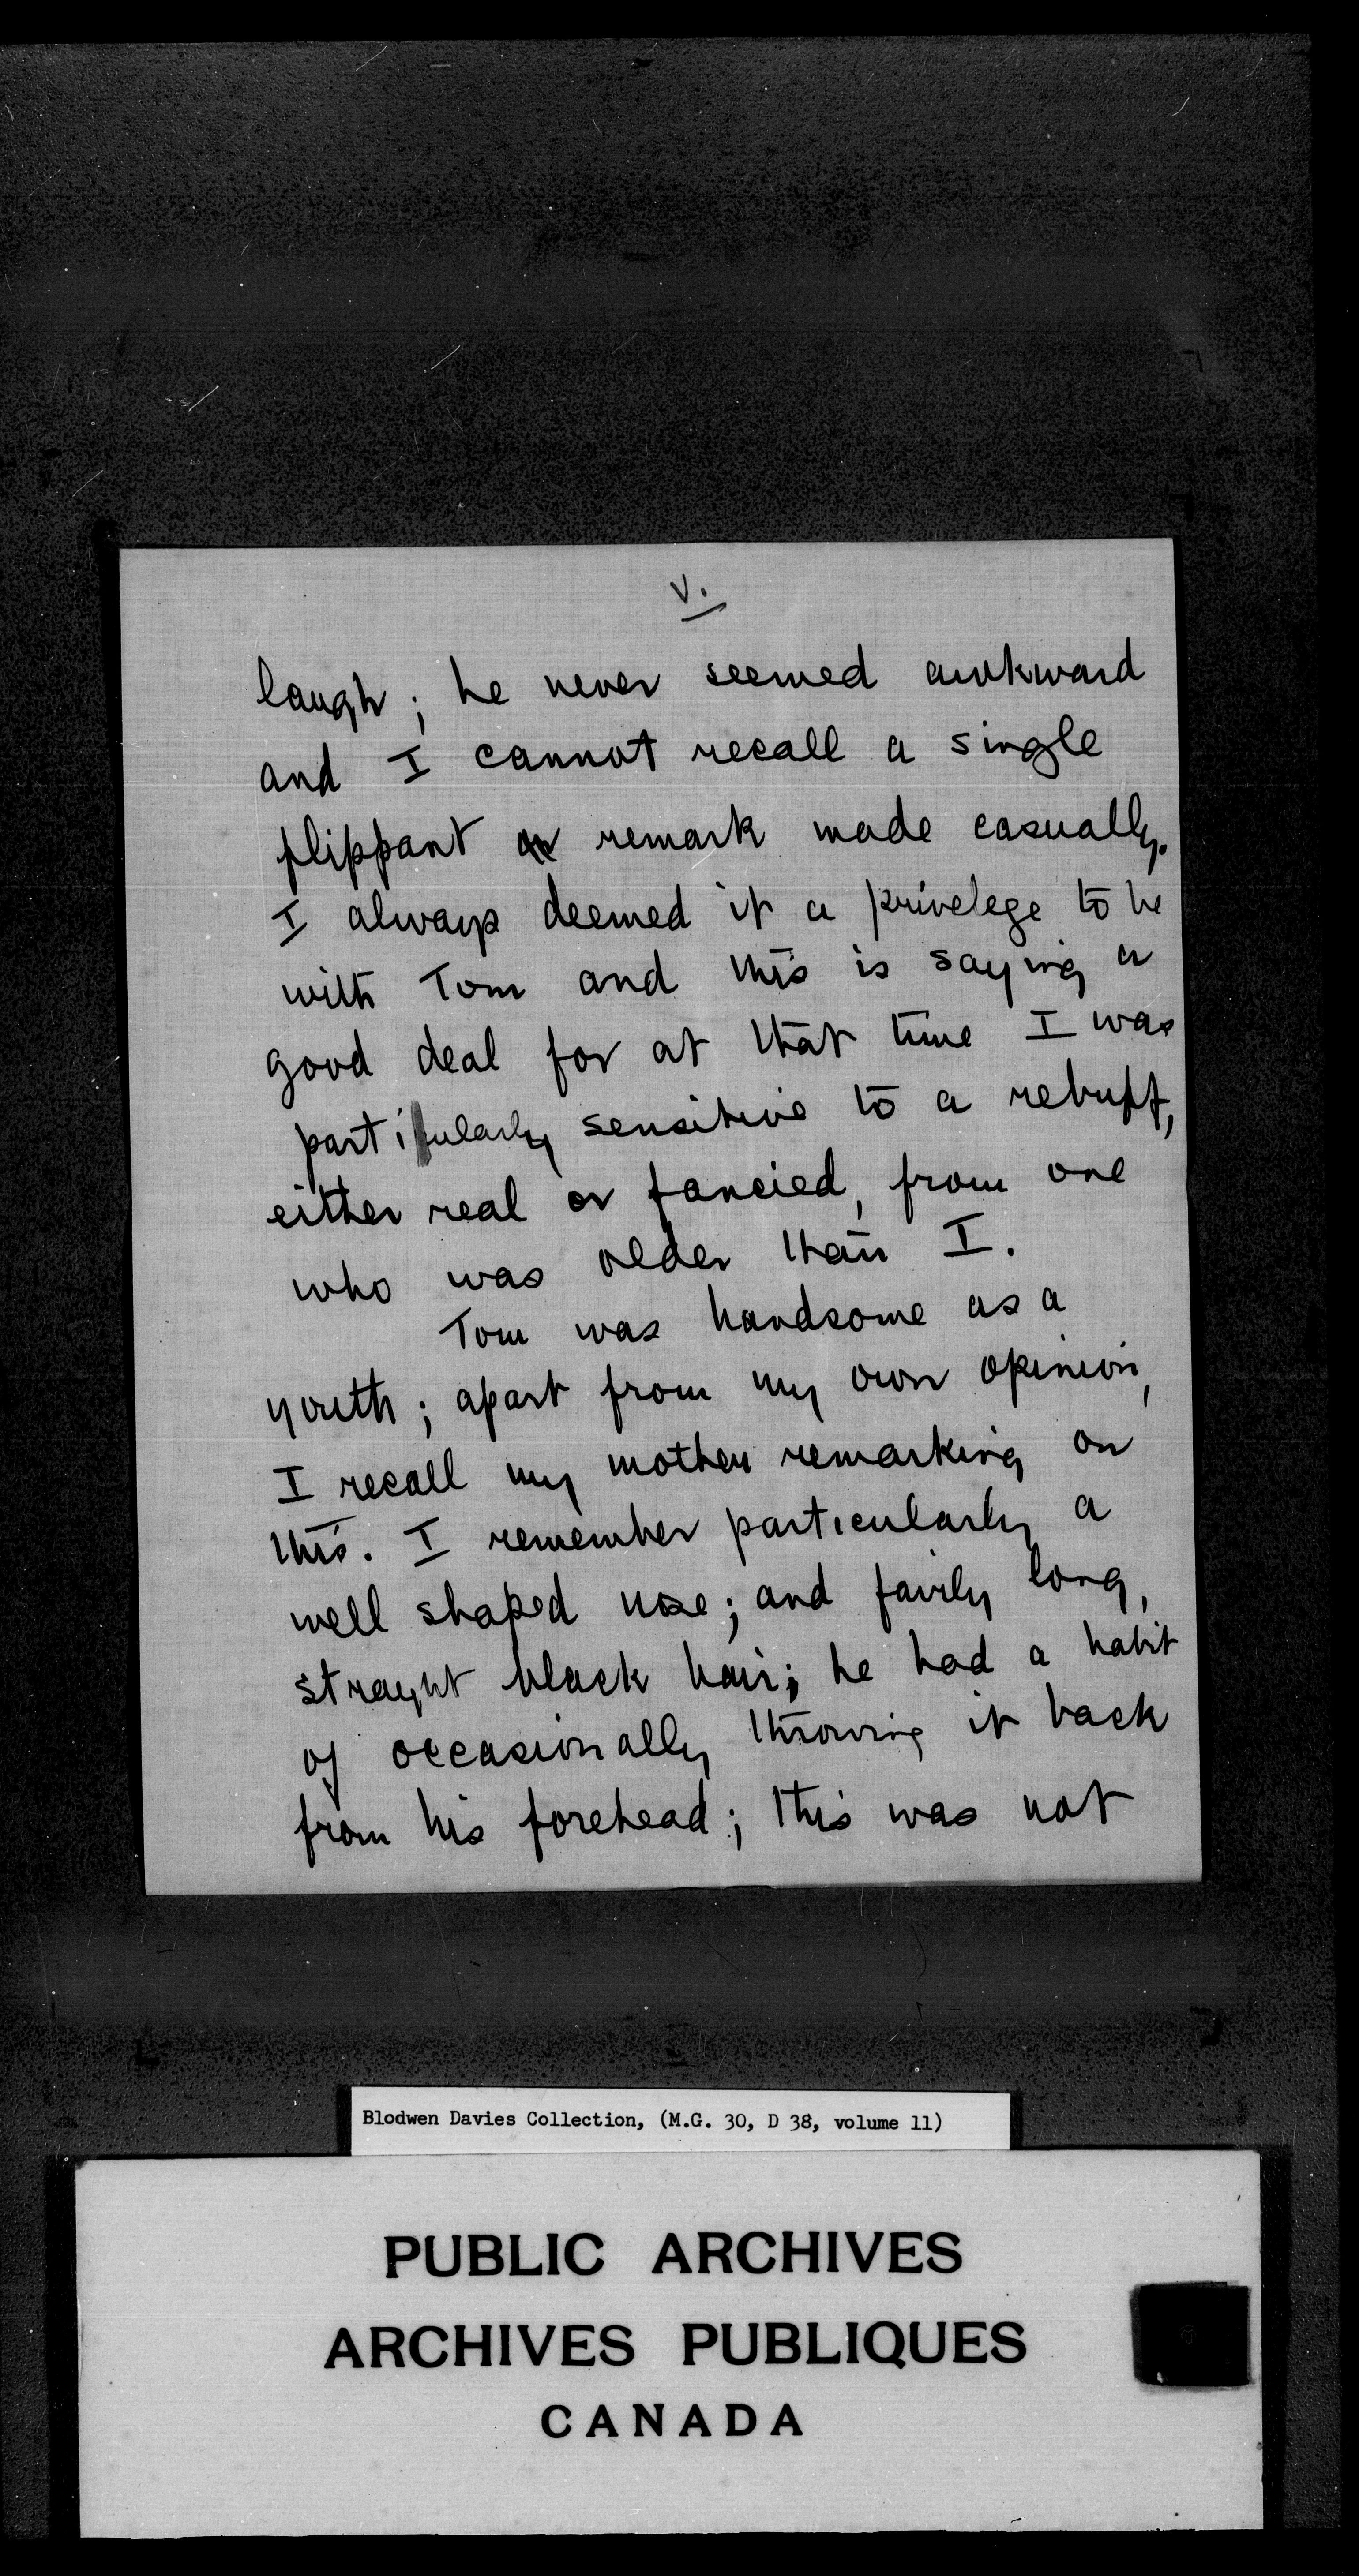 V.
laugh; he never seemed awkward
and I cannot recall a single
flippant or remark made casually.
I always deemed it a privelege to be
with Tom and this is saying a
good deal for at that time I was
particularly sensitive to a rebuff,
either real or fancied, from one
who was older than I.
Tom was handsome as a
youth; apart from my own opinion,
I recall my mother remarking on
this. I remember particularly a
well shaped nose; and fairly long,
straight black hair; he had a habit
of occasionally throwing it back
from his forehead; this was not
Blodwen Davies Collection, (M.G. 30, D 38, volume 11)
PUBLIC ARCHIVES
ARCHIVES PUBLIQUES
CANADA